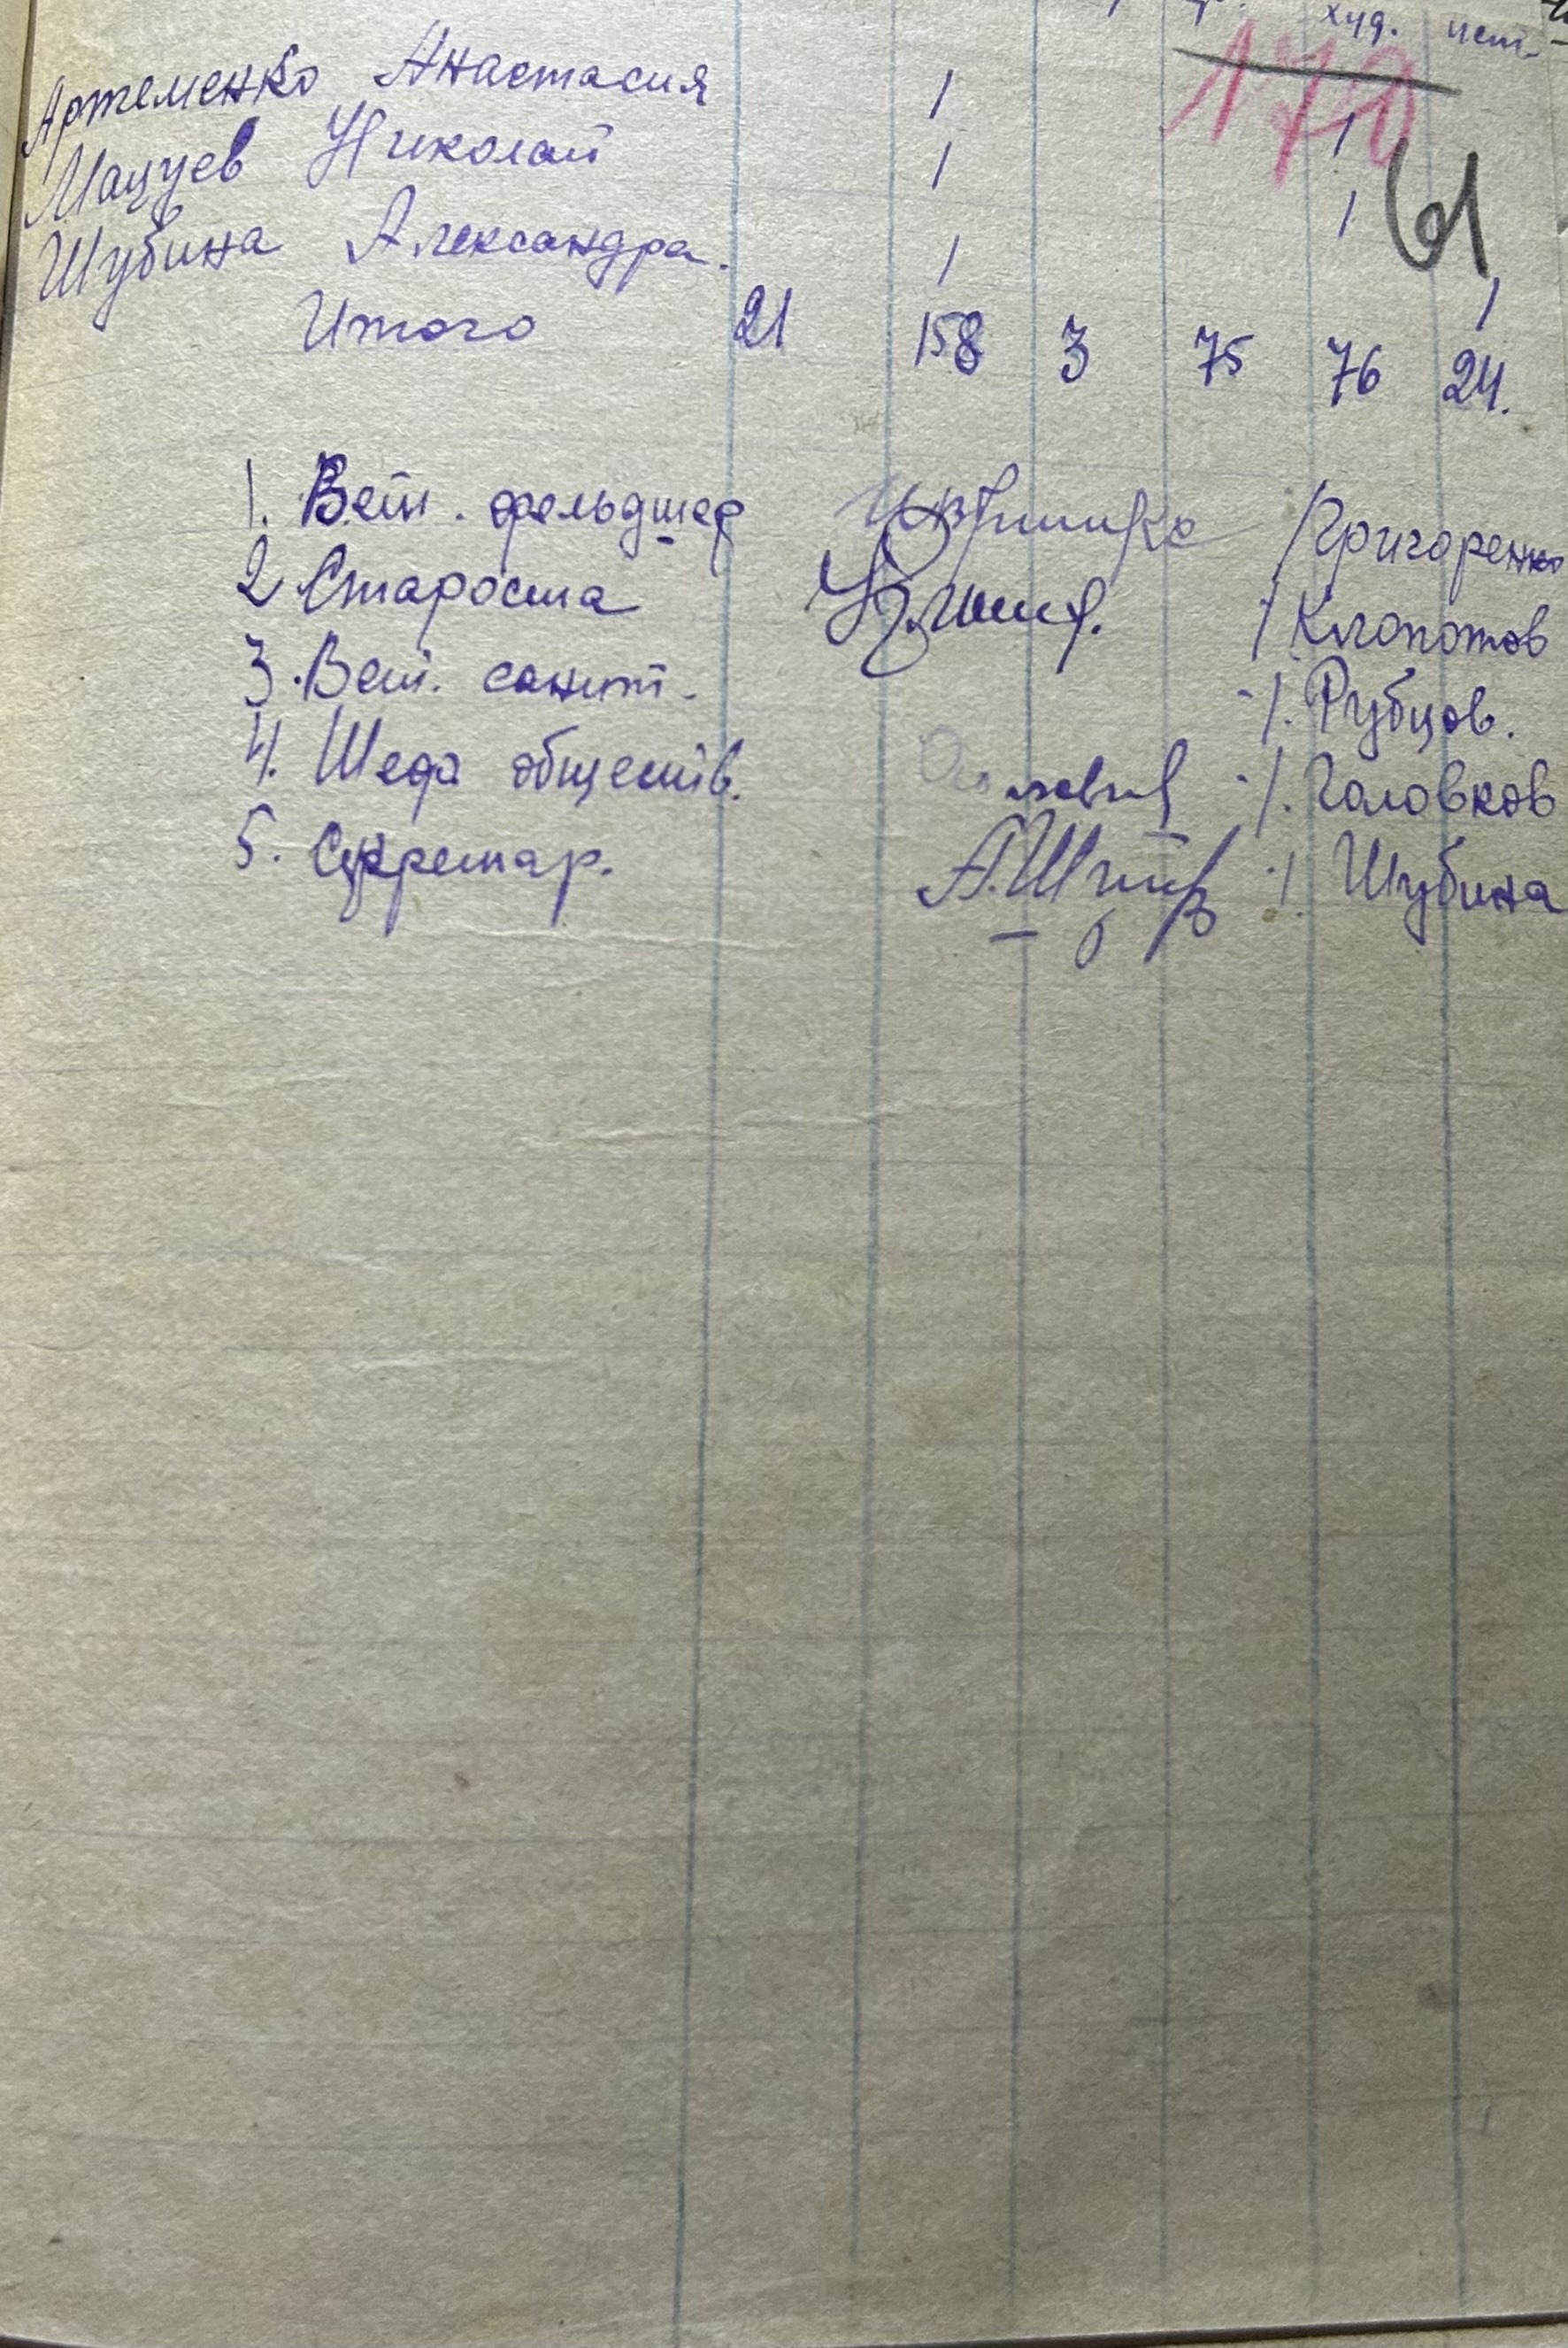 худ. ист.
170
61
Артеменко Анастасия 1 1
Мацуев Николай 1 1
Шубина Александра. 1 1
Итого 21 158 3 75 76 24.
1. Вет. фельдшер /Григоренко
2 Староста / Клопотов
3. Вет. санит. - /. Рубцов.
4. Шефа обществ. - /. Головков
5. Секретар. А.Шуб /. Шубина